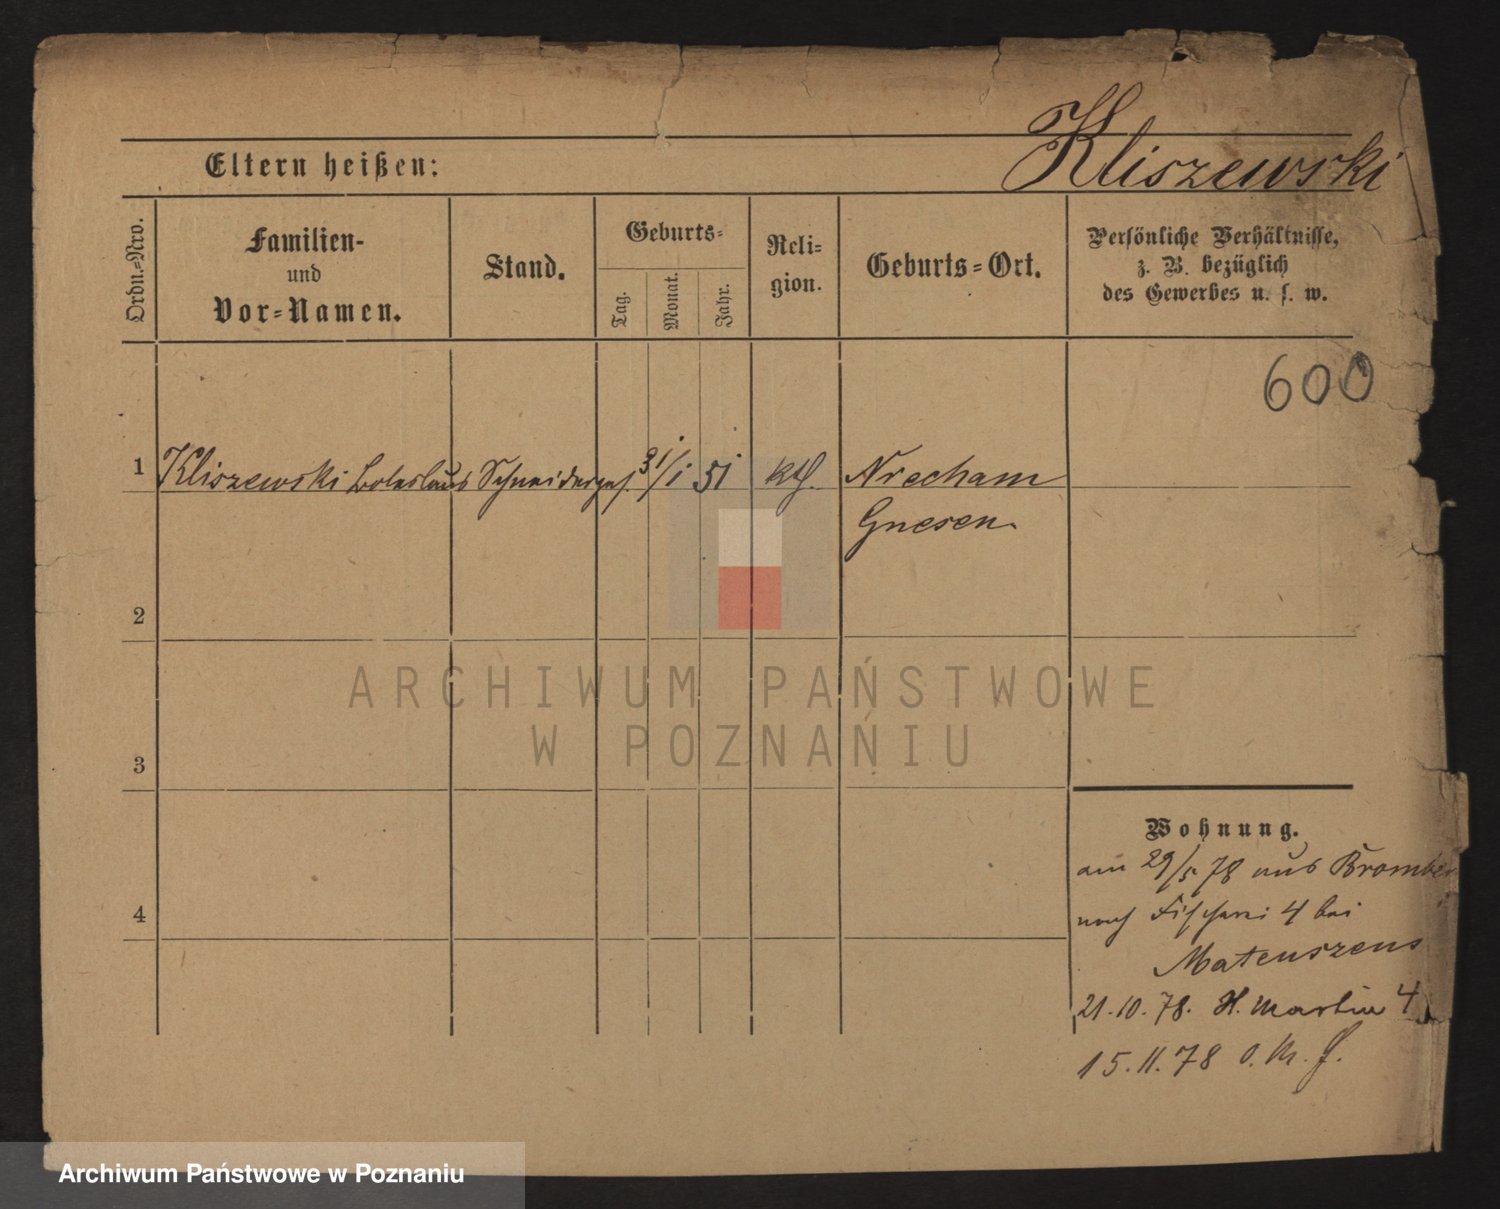 Kliszewski
Eltern heißen:
Ordn.=Nro.
Familien-
und
Vor=Namen.
Stand.
Geburts=
Tag.
Monat.
Jahr.
Reli=
gion.
Geburts=Ort.
Persönliche Verhältnisse,
z. B. bezüglich
des Gewerbes u. s. w.
600
1 Kliszewski Boleslaus Schneiderges. 31/1 51 kth. Nrecham
Gnesen.
2
3
4
ARCHIWUM PAŃSTWOWE
W POZNANIU
Wohnung.
am 29/5 78 aus Bromber
nach Fischerei 4 bei
Mateuszens
21.10.78. H. Martin 4
15.11.78 o. M. f.
Archiwum Państwowe w Poznaniu